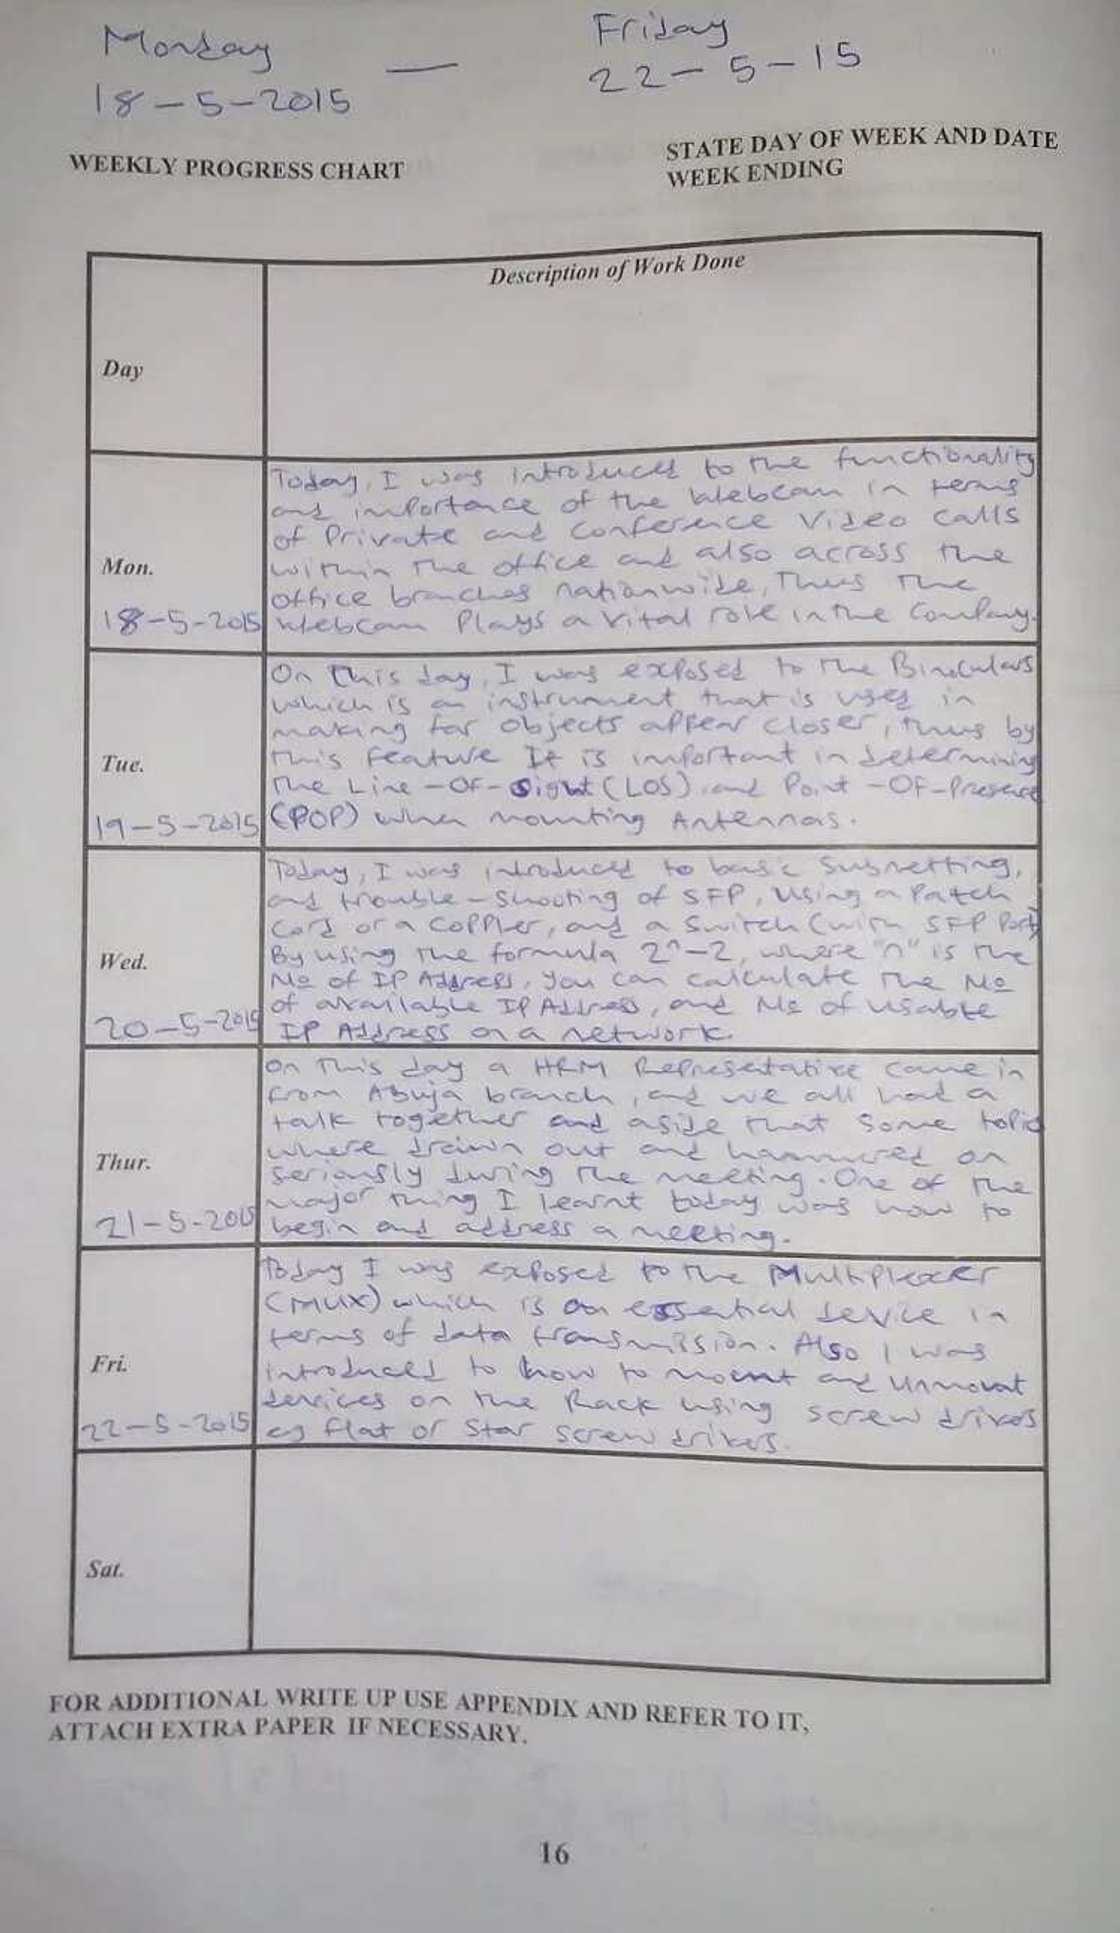 Monday — Friday
18-5-2015 22-5-15
WEEKLY PROGRESS CHART
STATE DAY OF WEEK AND DATE
WEEK ENDING
Description of Work Done
Day
Mon.
18-5-2015
Today, I was introduced to the functionality
and importance of the Webcam in terms
of Private and Conference Video Calls
within the office and also across the
office branches nationwide, Thus the
Webcam Plays a Vital role in the Company.
Tue.
19-5-2015
On this day, I was exposed to the Binoculars
which is an instrument that is used in
making far objects appear closer, thus by
this feature It is important in determining
the Line-Of-Sight (LOS), and Point-Of-Presence
(POP) when mounting Antennas.
Wed.
20-5-2015
Today, I was introduced to basic Subnetting,
and trouble-shooting of SFP, Using a Patch
Cord or a Coppler, and a Switch (with SFP Port)
By using the formula 2^n-2, where "n" is the
No of IP Address, you can calculate the No
of available IP Address, and No of usable
IP Address on a network.
Thur.
21-5-2015
On this day a HRM Representative came in
from Abuja branch, and we all had a
talk together and aside that some topic
where drawn out and hammered on
seriously during the meeting. One of the
major thing I learnt today was how to
begin and address a meeting.
Fri.
22-5-2015
Today I was exposed to the Multiplexer
(MUX) which is an essential device in
terms of data transmission. Also I was
introduced to how to mount and Unmount
devices on the Rack using screw drivers
eg flat or star screw drivers.
Sat.
FOR ADDITIONAL WRITE UP USE APPENDIX AND REFER TO IT,
ATTACH EXTRA PAPER IF NECESSARY.
16